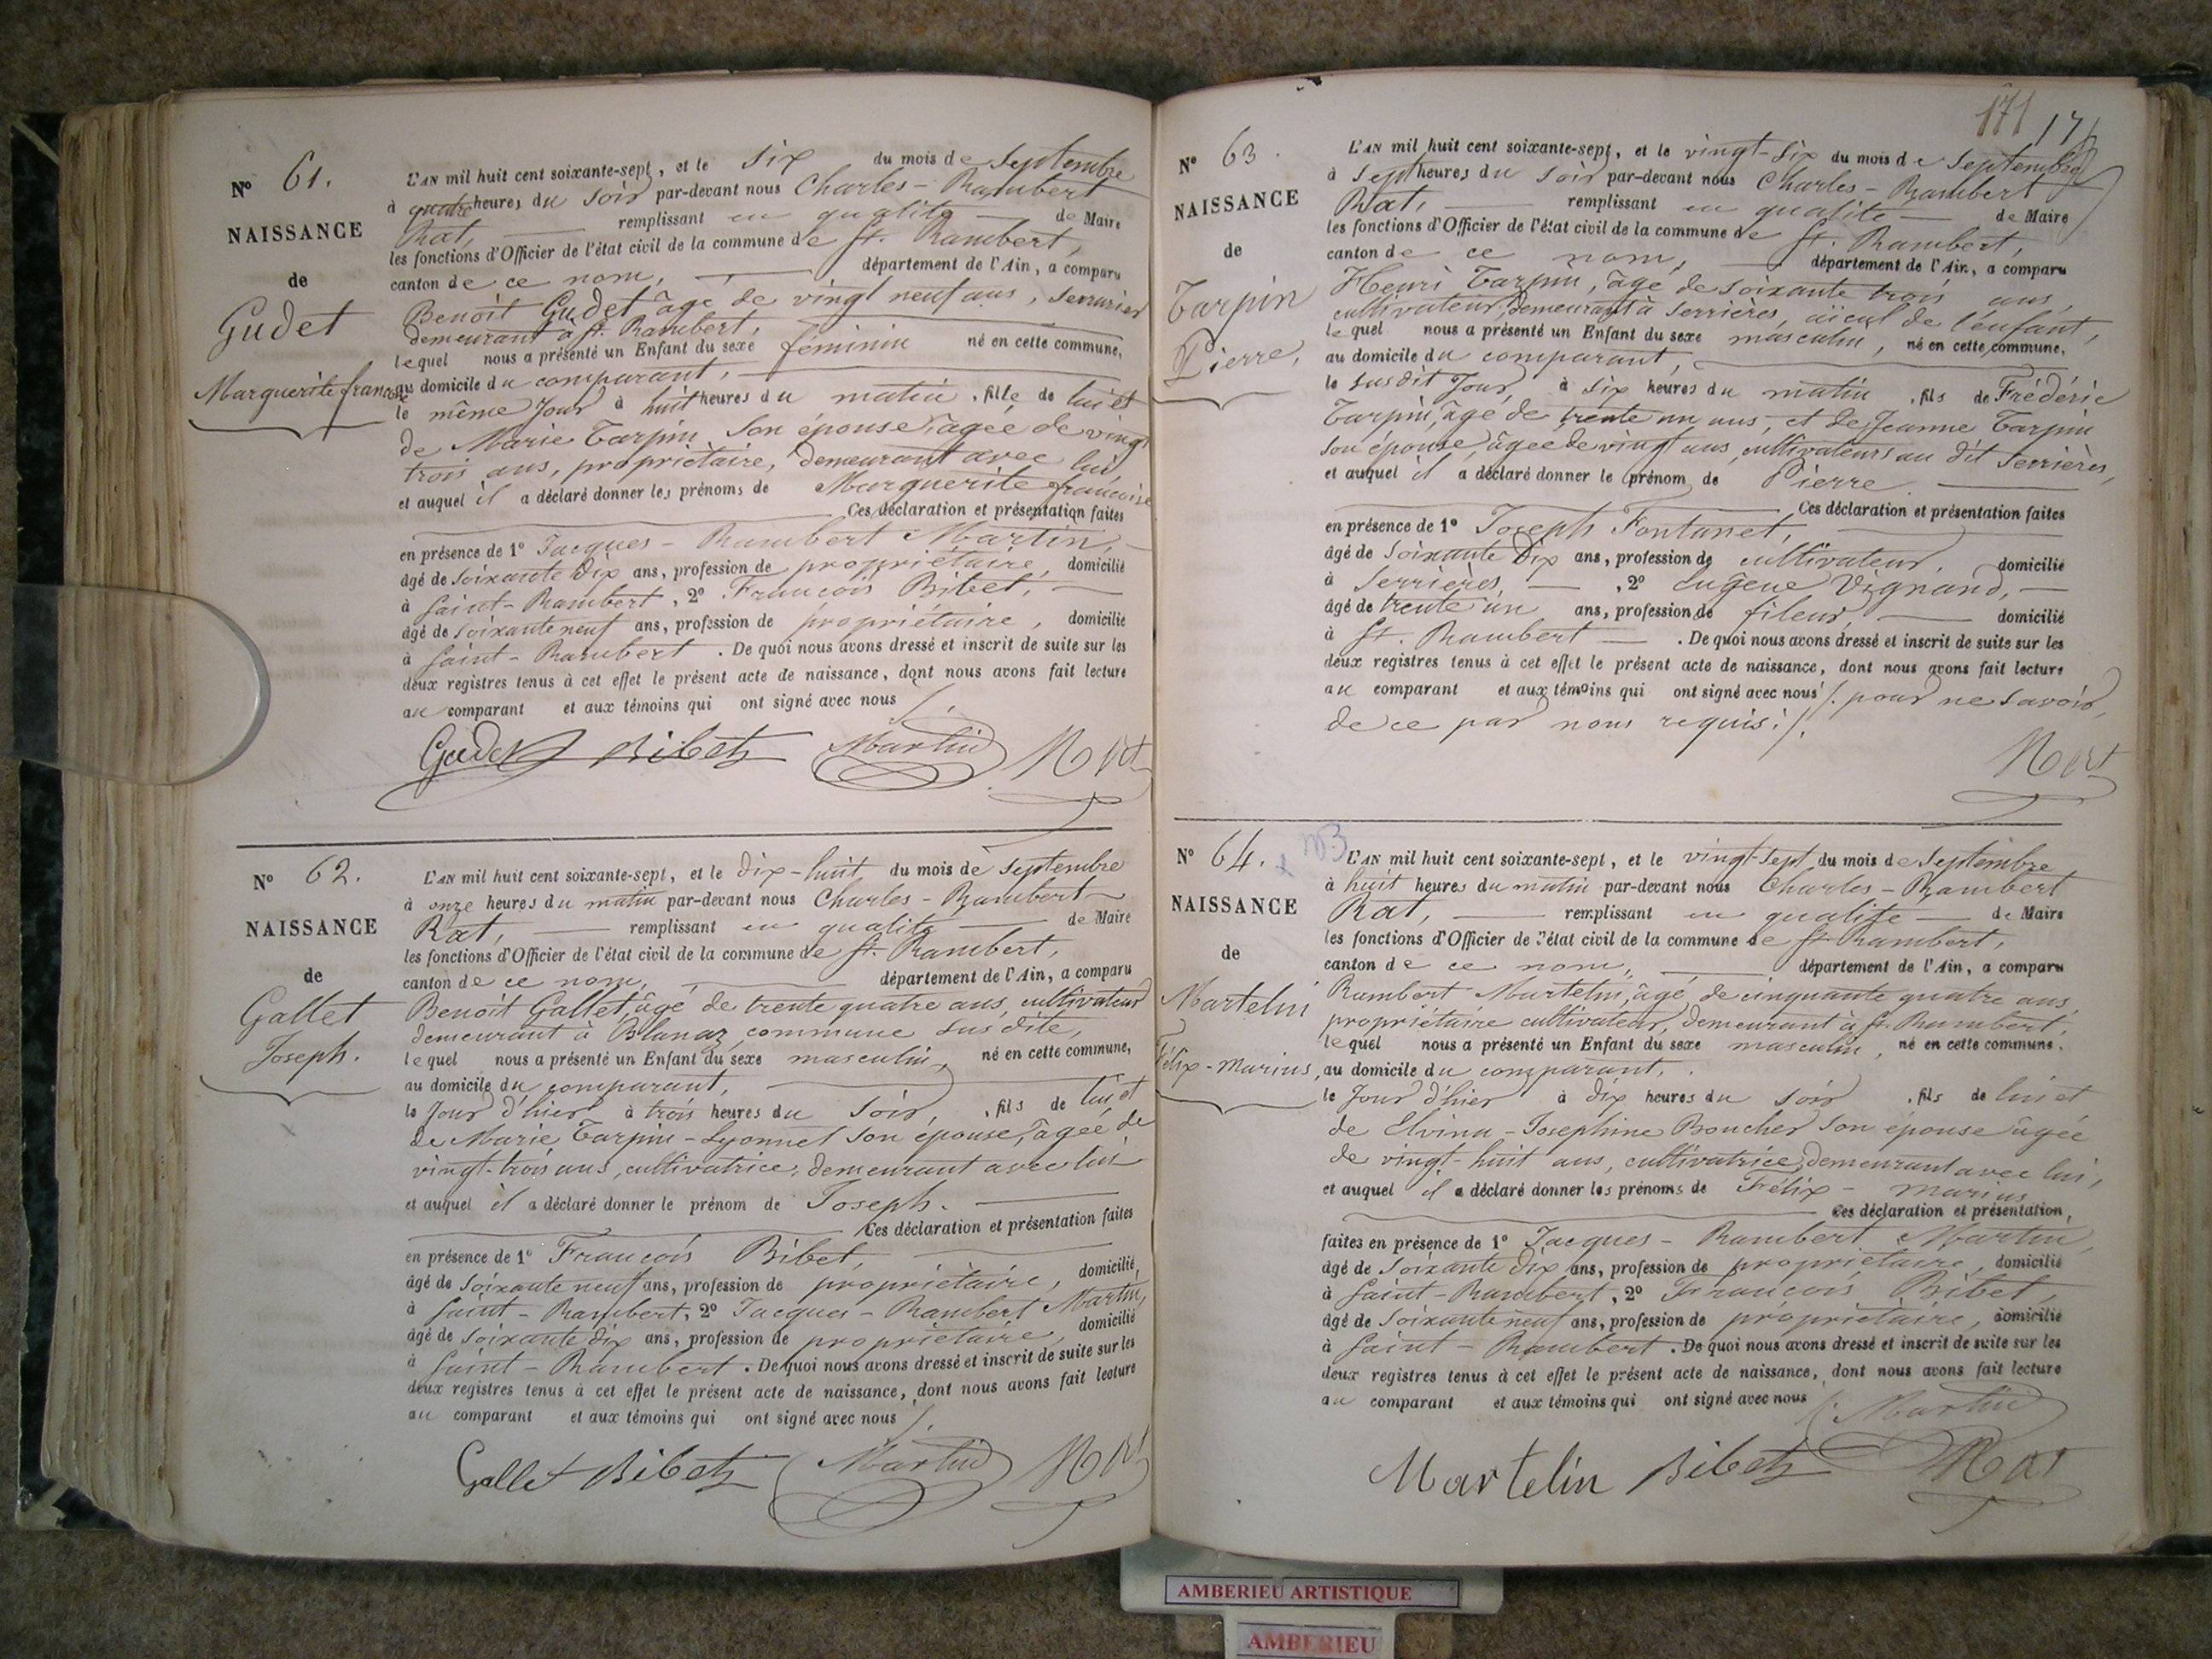 N° 61.
NAISSANCE
de
Gudet
Marguerite françoise
L'AN mil huit cent soixante-sept, et le six du mois de Septembre
à quatre heures du soir par-devant nous Charles - Rambert
Rat, remplissant en qualité de Maire
les fonctions d'Officier de l'état civil de la commune de St. Rambert,
canton de ce nom, département de l'Ain, a comparu
Benoît Gudet âgé de vingt neuf ans, serrurier
demeurant à St. Rambert,
lequel nous a présenté un Enfant du sexe féminin né en cette commune,
au domicile du comparant,
le même jour à huit heures du matin, fille de lui et
de Marie Tarpin son épouse, âgée de vingt
trois ans, propriétaire, demeurant avec lui
et auquel il a déclaré donner les prénoms de Marguerite françoise
Ces déclaration et présentation faites
en présence de 1° Jacques - Rambert Martin,
âgé de soixante dix ans, profession de propriétaire, domicilié
à Saint - Rambert, 2° François Bibet,
âgé de soixante neuf ans, profession de propriétaire, domicilié
à Saint - Rambert. De quoi nous avons dressé et inscrit de suite sur les
deux registres tenus à cet effet le présent acte de naissance, dont nous avons fait lecture
au comparant et aux témoins qui ont signé avec nous
Gudet Bibet Martin Rat
N° 62.
NAISSANCE
de
Gallet
Joseph.
L'AN mil huit cent soixante-sept, et le dix-huit du mois de Septembre
à onze heures du matin par-devant nous Charles - Rambert
Rat, remplissant en qualité de Maire
les fonctions d'Officier de l'état civil de la commune de St. Rambert,
canton de ce nom, département de l'Ain, a comparu
Benoît Gallet, âgé de trente quatre ans, cultivateur
demeurant à Blanaz, commune sus dite,
lequel nous a présenté un Enfant du sexe masculin, né en cette commune,
au domicile du comparant,
le jour d'hier à trois heures du soir, fils de lui et
de Marie Tarpin - Lyonnet son épouse, âgée de
vingt-trois ans, cultivatrice, demeurant avec lui
et auquel il a déclaré donner le prénom de Joseph.
Ces déclaration et présentation faites
en présence de 1° François Bibet,
âgé de soixante neuf ans, profession de propriétaire, domicilié,
à Saint - Rambert, 2° Jacques - Rambert Martin,
âgé de soixante dix ans, profession de propriétaire, domicilié
à Saint - Rambert. De quoi nous avons dressé et inscrit de suite sur les
deux registres tenus à cet effet le présent acte de naissance, dont nous avons fait lecture
au comparant et aux témoins qui ont signé avec nous
Gallet Bibet Martin Rat
171
N° 63.
NAISSANCE
de
Tarpin
Pierre,
L'AN mil huit cent soixante-sept, et le vingt-six du mois de Septembre
à sept heures du soir par-devant nous Charles - Rambert
Rat, remplissant en qualité de Maire
les fonctions d'Officier de l'état civil de la commune de St. Rambert,
canton de ce nom, département de l'Ain, a comparu
Henri Tarpin, âgé de soixante trois ans,
cultivateur, demeurant à Serrières, aïeul de l'enfant,
lequel nous a présenté un Enfant du sexe masculin, né en cette commune,
au domicile du comparant,
le susdit jour, à six heures du matin, fils de Frédéric
Tarpin, âgé de trente un ans, et de Jeanne Tarpin
son épouse, âgée de vingt ans, cultivateurs au dit Serrières,
et auquel il a déclaré donner le prénom de Pierre.
Ces déclaration et présentation faites
en présence de 1° Joseph Fontanet,
âgé de soixante dix ans, profession de cultivateur, domicilié
à Serrières, 2° Eugène Vignand,
âgé de trente un ans, profession de fileur, domicilié
à St. Rambert. De quoi nous avons dressé et inscrit de suite sur les
deux registres tenus à cet effet le présent acte de naissance, dont nous avons fait lecture
au comparant et aux témoins qui ont signé avec nous /. pour ne savoir,
de ce par nous requis. /.
Rat
N° 64.
NAISSANCE
de
Martelin
Félix - Marius,
L'AN mil huit cent soixante-sept, et le vingt-sept du mois de Septembre
à huit heures du matin par-devant nous Charles - Rambert
Rat, remplissant en qualité de Maire
les fonctions d'Officier de l'état civil de la commune de St. Rambert,
canton de ce nom, département de l'Ain, a comparu
Rambert Martelin, âgé de cinquante quatre ans
propriétaire cultivateur, demeurant à St. Rambert,
lequel nous a présenté un Enfant du sexe masculin, né en cette commune,
au domicile du comparant,
le jour d'hier à dix heures du soir, fils de lui et
de Elvina - Josephine Boucher son épouse âgée
de vingt-huit ans, cultivatrice, demeurant avec lui,
et auquel il a déclaré donner les prénoms de Félix - Marius
Ces déclaration et présentation,
faites en présence de 1° Jacques - Rambert Martin,
âgé de soixante dix ans, profession de propriétaire, domicilié
à Saint - Rambert, 2° François Bibet,
âgé de soixante neuf ans, profession de propriétaire, domicilié
à Saint - Rambert. De quoi nous avons dressé et inscrit de suite sur les
deux registres tenus à cet effet le présent acte de naissance, dont nous avons fait lecture
au comparant et aux témoins qui ont signé avec nous
Martin
Martelin Bibet Rat
AMBERIEU ARTISTIQUE
AMBERIEU